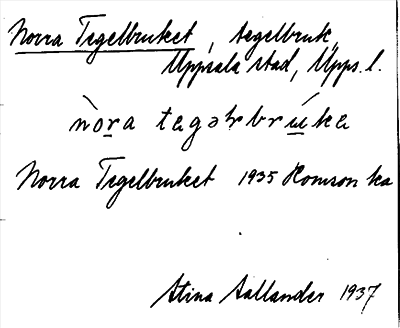 Norra Tegelbruket, tegelbruk,
Uppsala stad, Upps. l.
nòra tegəɫbrúke
Norra Tegelbruket 1935 Homson ka
Stina Aallander 1937